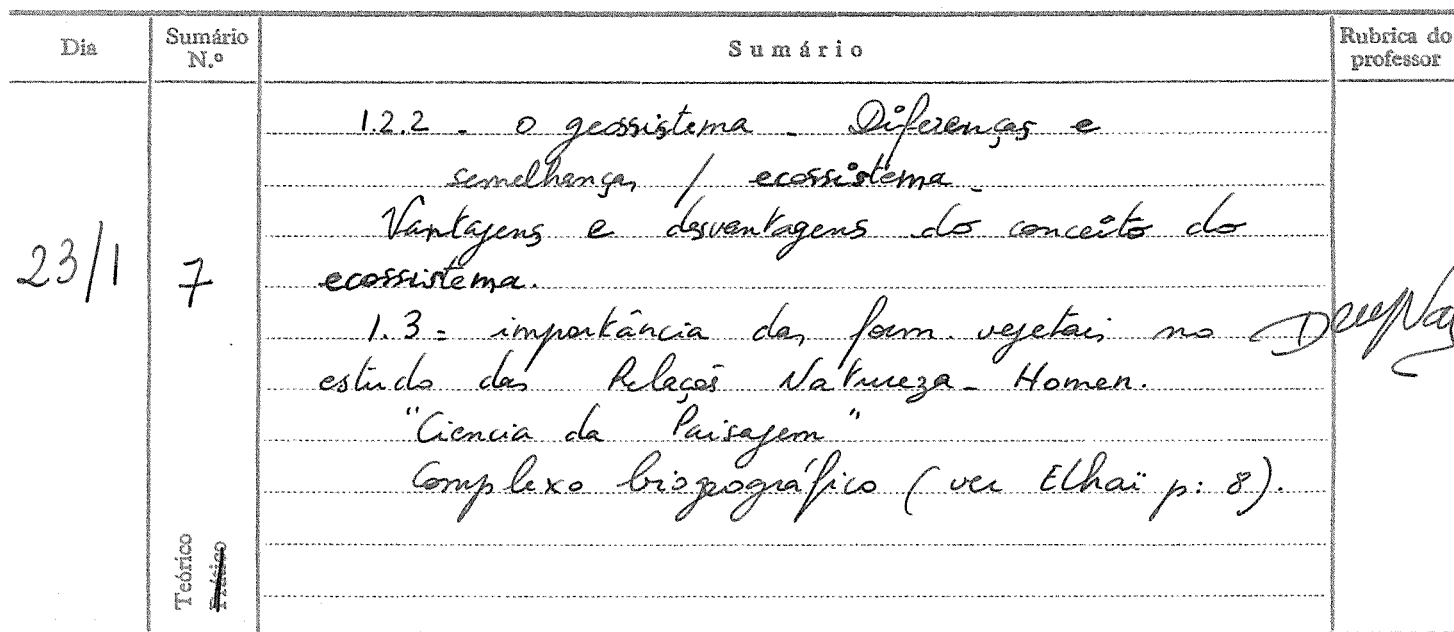 Dia Sumário N.º Sumário Rubrica do professor
1.2.2 - O geossistema - Diferenças e
semelhanças / ecossistema -
Vantajens e desvantagens do conceito do
ecossistema.
23/1 7
1.3 - importância das form. vegetais no
estudo das Relaçoẽs Natureza - Homen.
"Ciencia da Paisagem"
Complexo biogeográfico (ver Elhaï p: 8).
Teórico
Prático